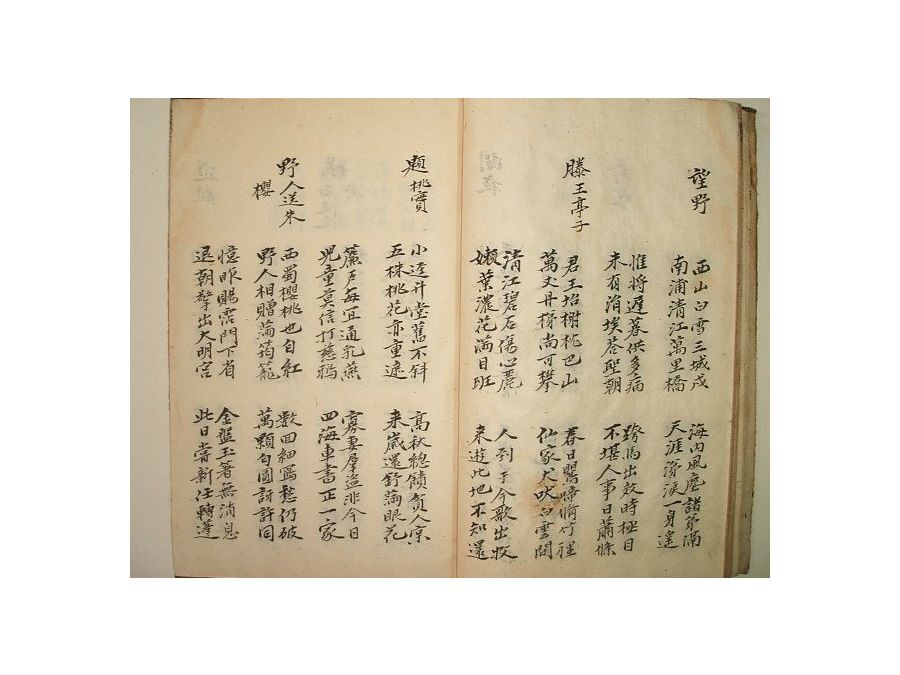 望野
西山白雪三城戍
南浦清江萬里橋
海內風塵諸弟隔
天涯涕淚一身遙
惟將遲暮供多病
未有涓埃答聖朝
跨馬出郊時極目
不堪人事日蕭條
滕王亭子
君王坮榭枕巴山
萬丈丹梯尚可攀
春日鶯啼脩竹裡
仙家犬吠白雲間
清江碧石傷心麗
嫩葉濃花滿目班
人到于今歌出牧
来遊此地不知還
題桃
小逕升堂舊不斜
五株桃花亦重遮
高秋總饋貧人
来歲還舒滿眼花
簾戶每宜通乳燕
兒童莫信打慈鴉
寡妻群盜非今日
四海車書正一家
野人送朱
櫻
西蜀櫻桃也自紅
野人相贈滿筠籠
數回細寫愁仍破
萬顆勻圓訝許同
憶昨賜霑門下省
退朝擎出大明宮
金盤玉箸無消息
此日嘗新任轉蓬